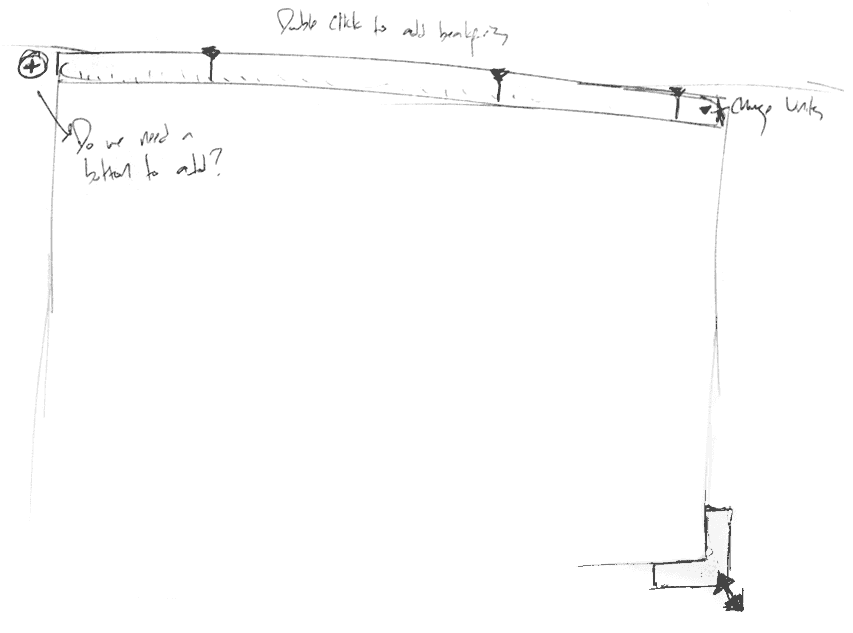 Double click to add breakpoints
Change Units
Do we need a
button to add?